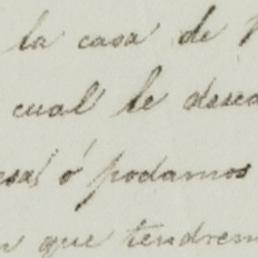 la casa de
cual le desea
esas ó podamos
que tendrem